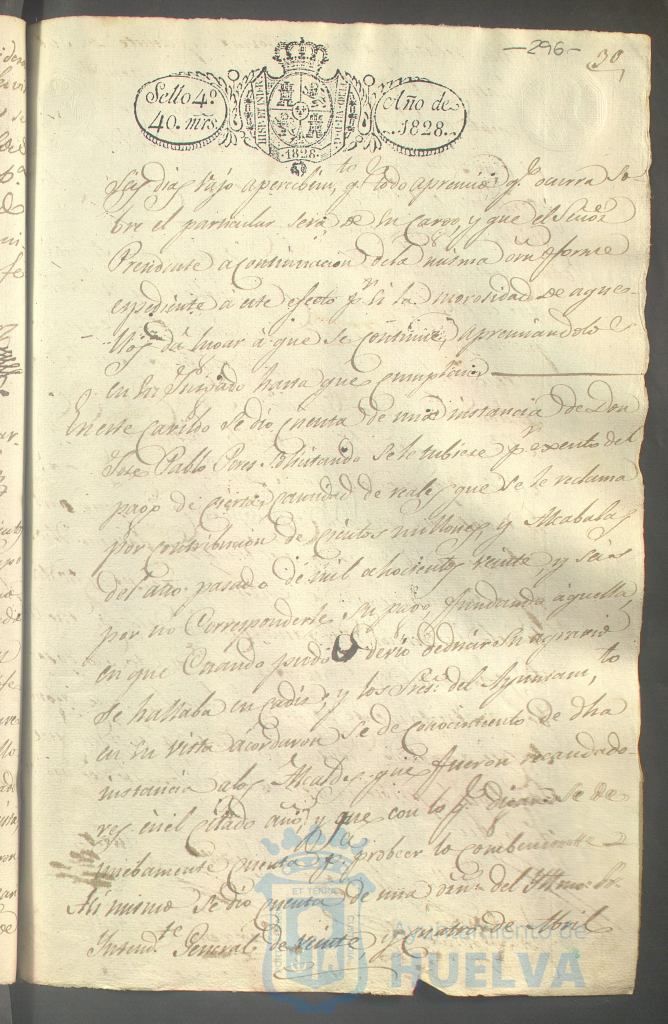 -296-
30
Sello 4º
40. mrs
HISP. ET IND. R.
1828.
Año de
1828.
Seis dias vajo apercibimto, qe todo apremio qe ocurra so
bre el particular será de su cargo, y que el Señor
Presidente á continuacion de la misma orn forme
espediente á este efecto pr si la morosidad de aque-
llos dá lugar á que se continue apremiandolos
en su Juzgado hasta que cumplan
En este cavildo se dio cuenta de una instancia de Don
Jose Pablo Peres solicitando se le tubiese pr exento del
pago de cierta cantidad de reales que se le reclama
por contribucion de cientos millones y Alcabalas
del año pasado de mil ochocientos veinte y seis
por no corresponderle su pago, fundando aquella,
en que cuando pudo ó devio deducir su agravio
se hallaba en Cadis; y los Sres. del Ayuntamto
en su vista acordaron se de conocimiento de dha
instancia a los Alcaldes que fueron recaudado-
res en el citado año, y que con lo qe digan se de
nuebamente cuenta pa probeer lo combeniente
Asi mismo se dio cuenta de una orn del Ilmo Sr.
Intendte General de veinte y cuatro de Abril
ET TERRÆ
Ayuntamiento de
HUELVA